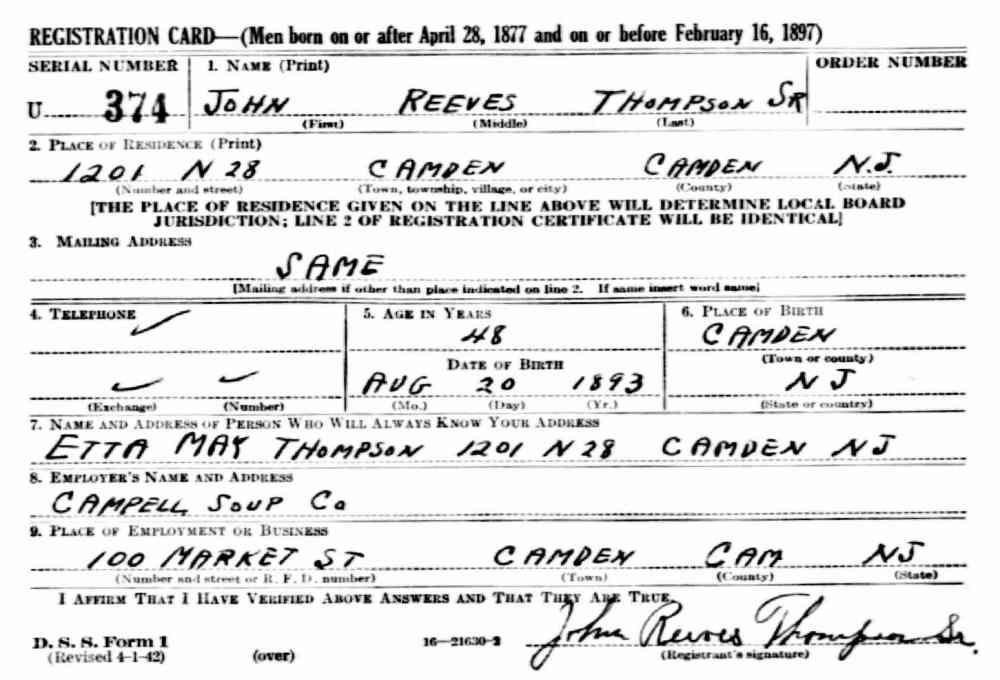 REGISTRATION CARD—(Men born on or after April 28, 1877 and on or before February 16, 1897)
SERIAL NUMBER 1. NAME (Print) ORDER NUMBER
U 374 JOHN REEVES THOMPSON SR
(First) (Middle) (Last)
2. PLACE OF RESIDENCE (Print)
1201 N 28 CAMDEN CAMDEN N.J.
(Number and street) (Town, township, village, or city) (County) (State)
[THE PLACE OF RESIDENCE GIVEN ON THE LINE ABOVE WILL DETERMINE LOCAL BOARD
JURISDICTION; LINE 2 OF REGISTRATION CERTIFICATE WILL BE IDENTICAL]
3. MAILING ADDRESS
SAME
[Mailing address if other than place indicated on line 2. If same insert word same]
4. TELEPHONE 5. AGE IN YEARS 6. PLACE OF BIRTH
48 CAMDEN
DATE OF BIRTH (Town or county)
AUG 20 1893 N J
(Exchange) (Number) (Mo.) (Day) (Yr.) (State or country)
7. NAME AND ADDRESS OF PERSON WHO WILL ALWAYS KNOW YOUR ADDRESS
ETTA MAY THOMPSON 1201 N 28 CAMDEN NJ
8. EMPLOYER'S NAME AND ADDRESS
CAMPELL SOUP Co
9. PLACE OF EMPLOYMENT OR BUSINESS
100 MARKET ST CAMDEN CAM NJ
(Number and street or R. F. D. number) (Town) (County) (State)
I AFFIRM THAT I HAVE VERIFIED ABOVE ANSWERS AND THAT THEY ARE TRUE.
D. S. S. Form 1 16—21630-2 John Reeves Thompson Sr.
(Revised 4-1-42) (over) (Registrant's signature)